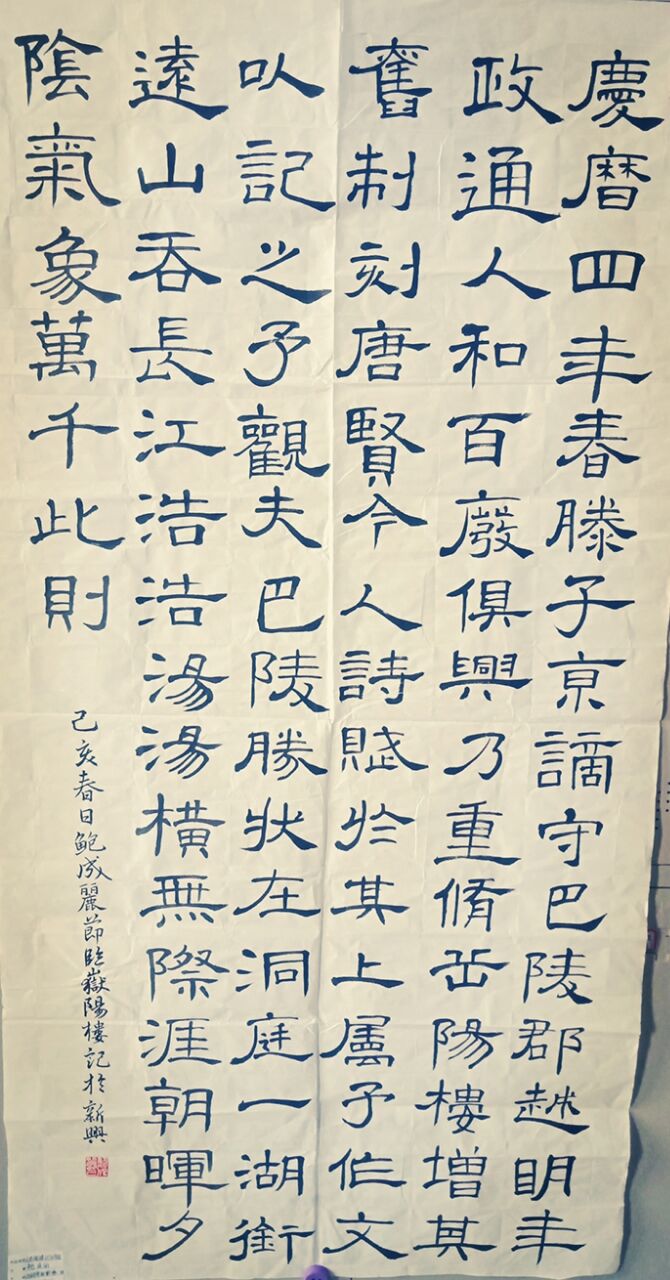 慶曆四年春滕子京謫守巴陵郡越明年
政通人和百廢俱興乃重脩岳陽樓增其
舊制刻唐賢今人詩賦於其上属予作文
以記之予觀夫巴陵勝状在洞庭一湖銜
遠山吞長江浩浩湯湯橫無際涯朝暉夕
陰氣象萬千此則
己亥春日鮑成麗節臨嶽陽樓記於新興